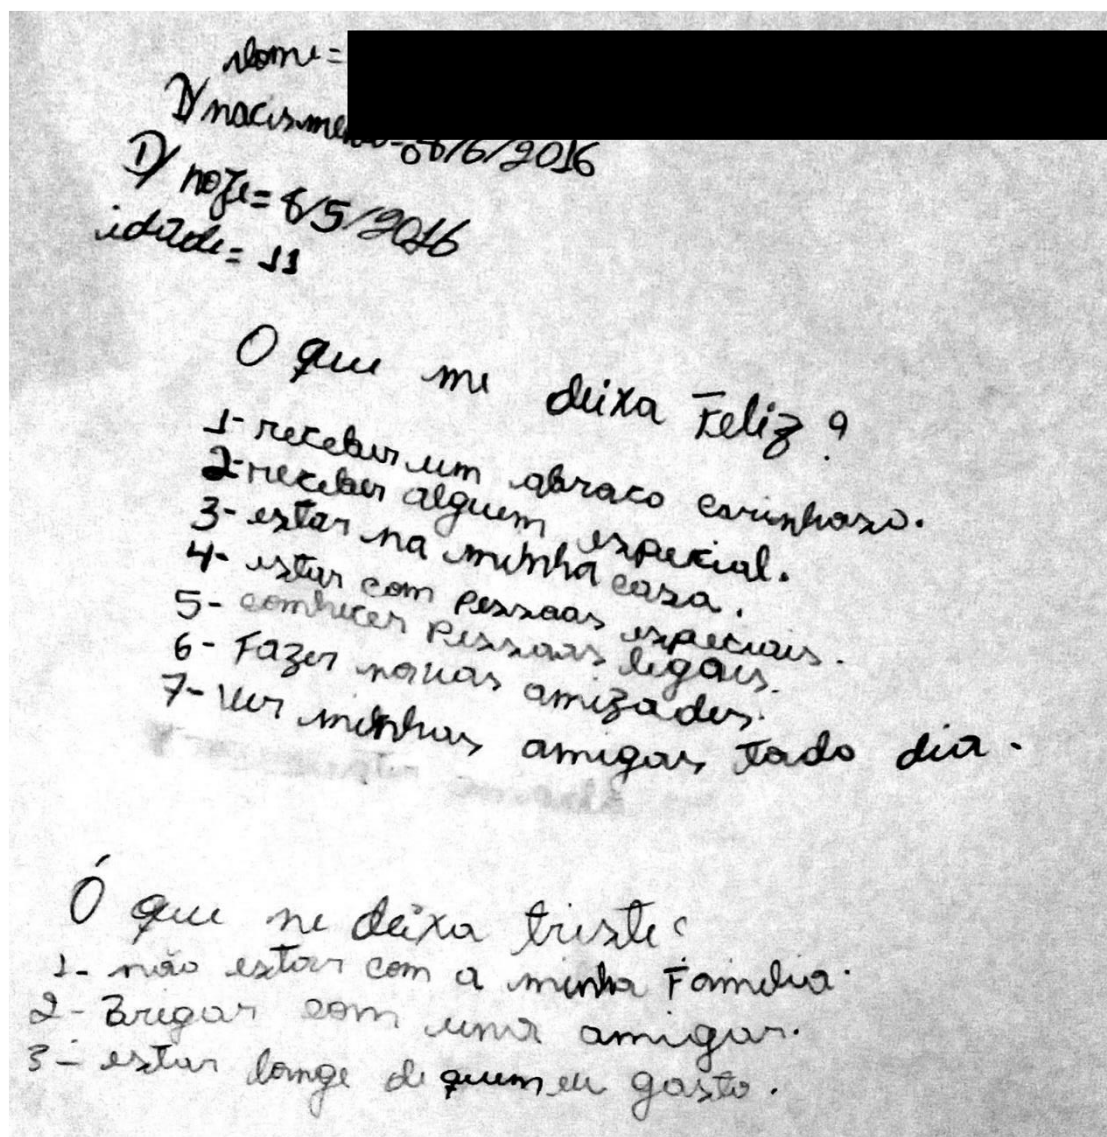 Nome=
D/ nacismento-08/6/2016
D/ hoje= 8/5/2016
idade= 11
O que me deixa Feliz?
1- receber um abraco carinhoso.
2- receber alguem especial.
3- estar na minha casa.
4- estar com pessoas especiais.
5- comhecer pessoas legais.
6- Fazer novas amizades.
7- Ver minhas amigas todo dia.
Ó que me deixa triste?
1- não estar com a minha Familia.
2- Brigar com uma amigar.
3- estar longe de quem eu gosto.